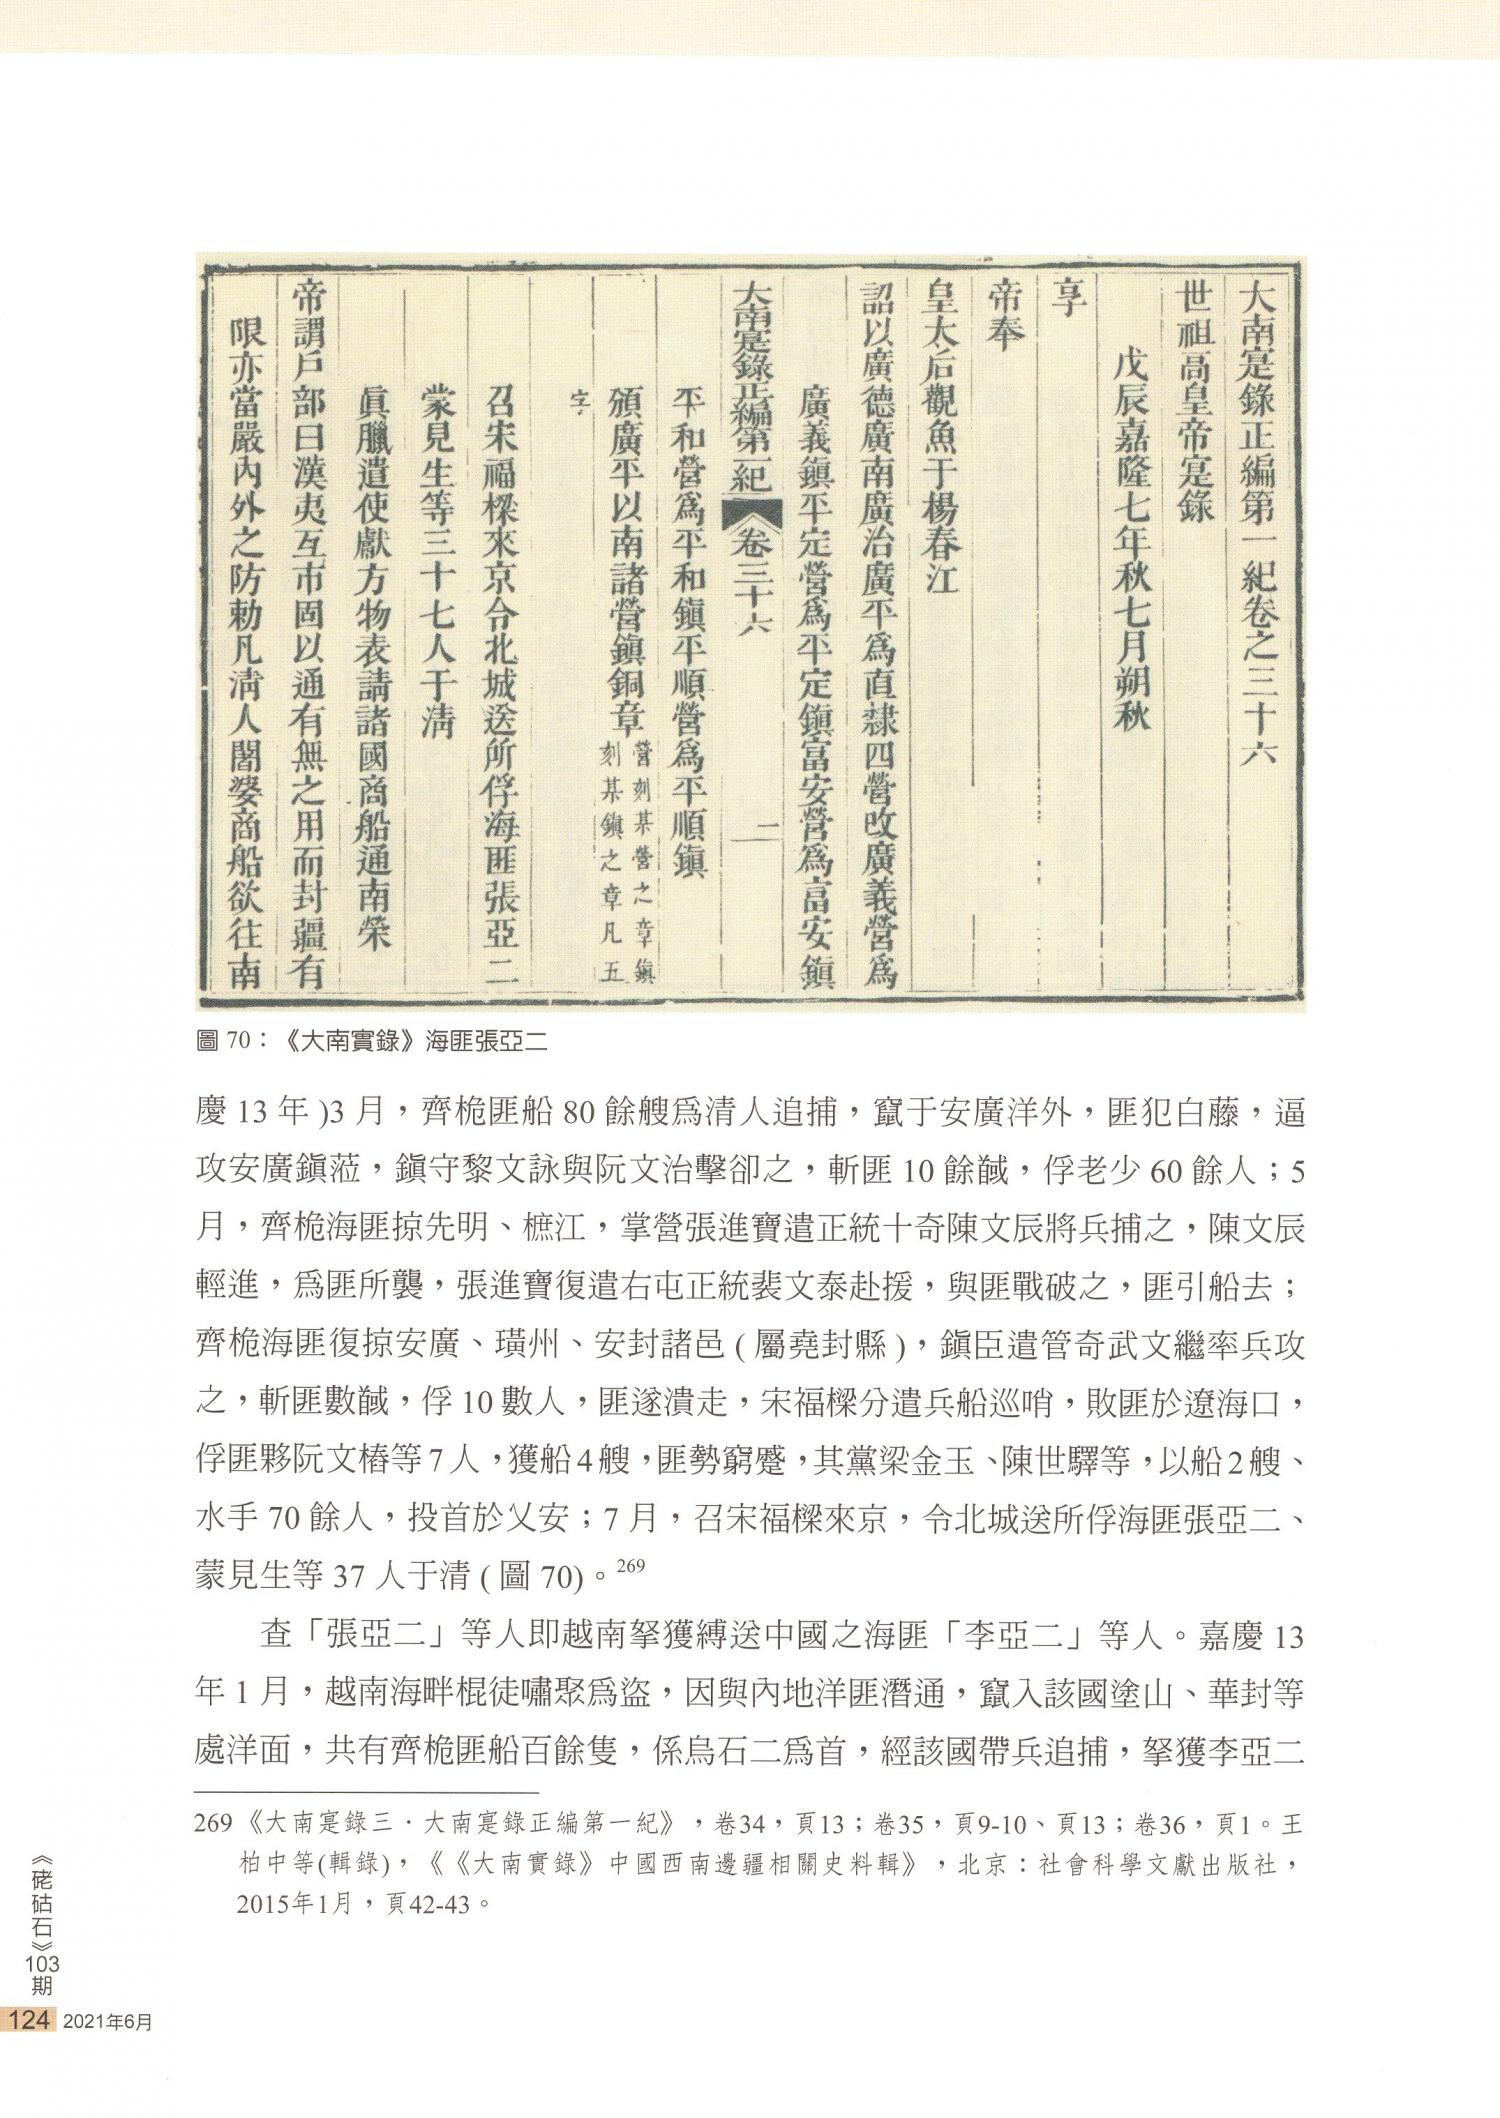 大南寔錄正編第一紀卷之三十六
世祖高皇帝寔錄
戊辰嘉隆七年秋七月朔秋
享
帝奉
皇太后觀魚于楊春江
詔以廣德廣南廣治廣平爲直隸四營改廣義營爲
廣義鎭平定營爲平定鎭富安營爲富安鎭
大南寔錄正編第一紀 卷三十六 二
平和營爲平和鎭平順營爲平順鎭
頒廣平以南諸營鎭銅章營刻某營之章鎭刻某鎭之章凡五
字
召宋福樑來京令北城送所俘海匪張亞二
蒙見生等三十七人于淸
眞臘遣使獻方物表請諸國商船通南榮
帝謂戶部曰漢夷互市固以通有無之用而封疆有
限亦當嚴內外之防勅凡淸人闍婆商船欲往南
圖 70：《大南實錄》海匪張亞二
慶 13 年)3 月，齊桅匪船 80 餘艘爲清人追捕，竄于安廣洋外，匪犯白藤，逼
攻安廣鎭蒞，鎭守黎文詠與阮文治擊卻之，斬匪 10 餘馘，俘老少 60 餘人；5
月，齊桅海匪掠先明、樜江，掌營張進寶遣正統十奇陳文辰將兵捕之，陳文辰
輕進，爲匪所襲，張進寶復遣右屯正統裴文泰赴援，與匪戰破之，匪引船去；
齊桅海匪復掠安廣、璜州、安封諸邑 ( 屬堯封縣 )，鎭臣遣管奇武文繼率兵攻
之，斬匪數馘，俘 10 數人，匪遂潰走，宋福樑分遣兵船巡哨，敗匪於遼海口，
俘匪夥阮文椿等 7 人，獲船 4 艘，匪勢窮蹙，其黨梁金玉、陳世驛等，以船 2 艘、
水手 70 餘人，投首於乂安；7 月，召宋福樑來京，令北城送所俘海匪張亞二、
蒙見生等 37 人于清 ( 圖 70)。269
查「張亞二」等人即越南拏獲縛送中國之海匪「李亞二」等人。嘉慶 13
年 1 月，越南海畔棍徒嘯聚爲盜，因與內地洋匪潛通，竄入該國塗山、華封等
處洋面，共有齊桅匪船百餘隻，係烏石二爲首，經該國帶兵追捕，拏獲李亞二
269《大南寔錄三．大南寔錄正編第一紀》，卷34，頁13；卷35，頁9-10、頁13；卷36，頁1。王
柏中等(輯錄)，《《大南實錄》中國西南邊疆相關史料輯》，北京：社會科學文獻出版社，
2015年1月，頁42-43。
《硓𥑮石》103期
124 2021年6月